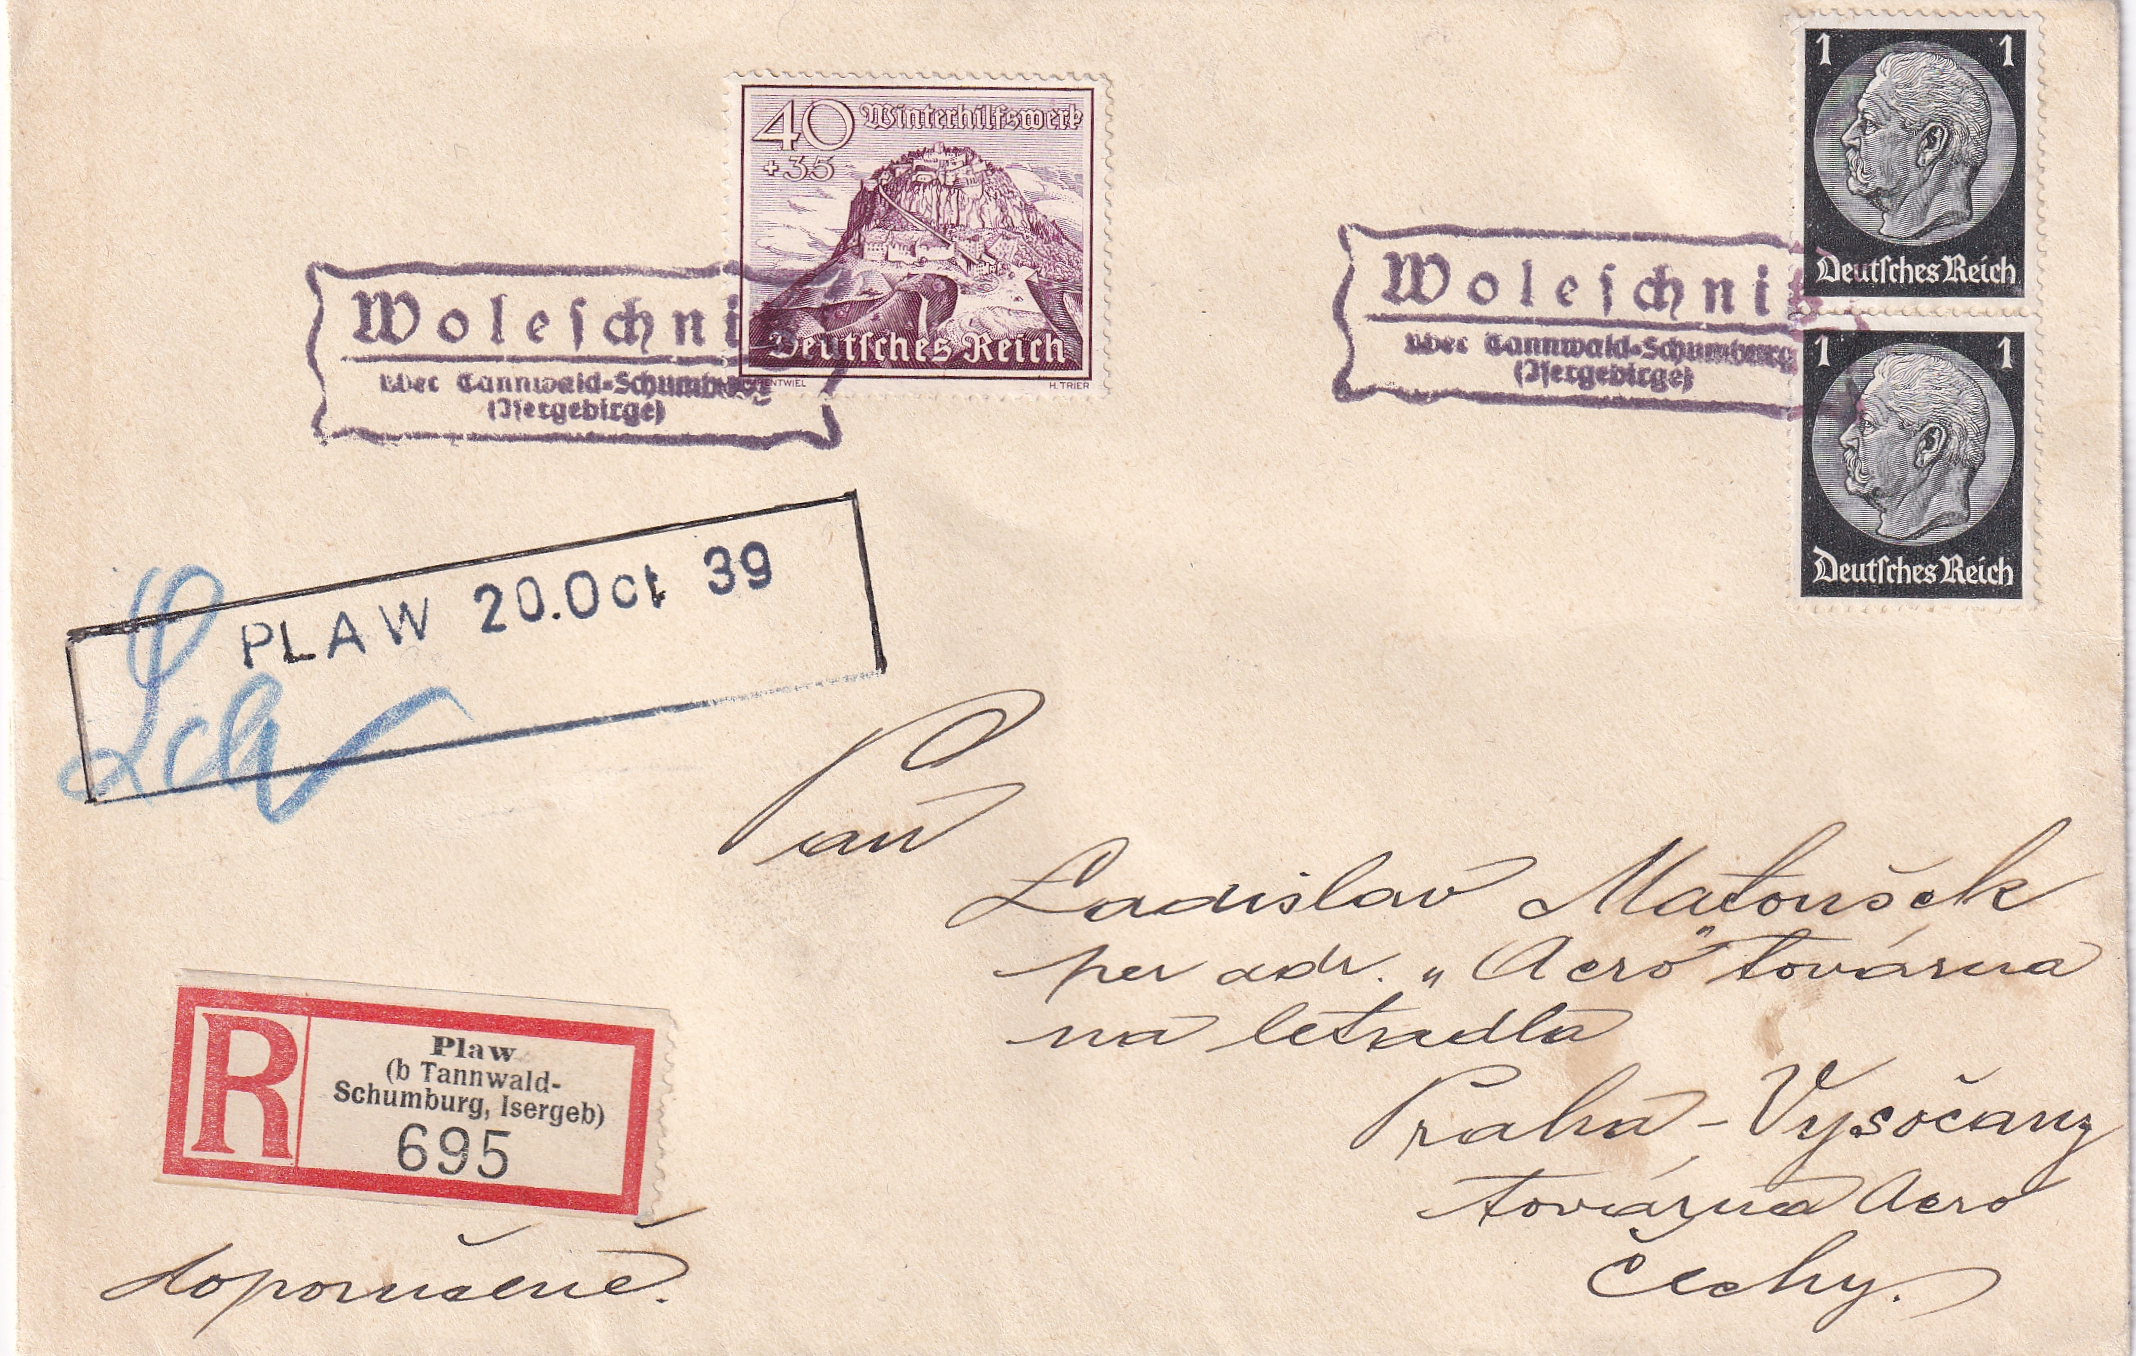 40 Winterhilfswerk
+35
Deutsches Reich
H. TRIER
1 1
Deutsches Reich
1 1
Deutsches Reich
Woleschni
über Tannwald-Schumburg
(Isergebirge)
Woleschni
über Tannwald-Schumburg
(Isergebirge)
PLAW 20.Oct 39
Pan
Ladislav Matoušek
per adr. „Aero" továrna
na letadla
Praha - Vysočany
továrna Aero
Čechy.
R
Plaw
(b Tannwald-
Schumburg, Isergeb)
695
doporučeně.